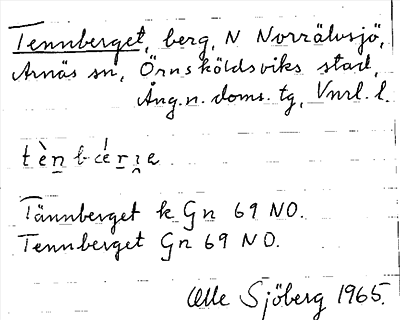 Tennberget, berg, N Norrälvsjö,
Arnäs sn, Örnsköldsviks stad,
Ång. n. doms. tg, Vnrl. l.
Tännberget k Gn 69 NO.
Tennberget Gn 69 NO.
Olle Sjöberg 1965.